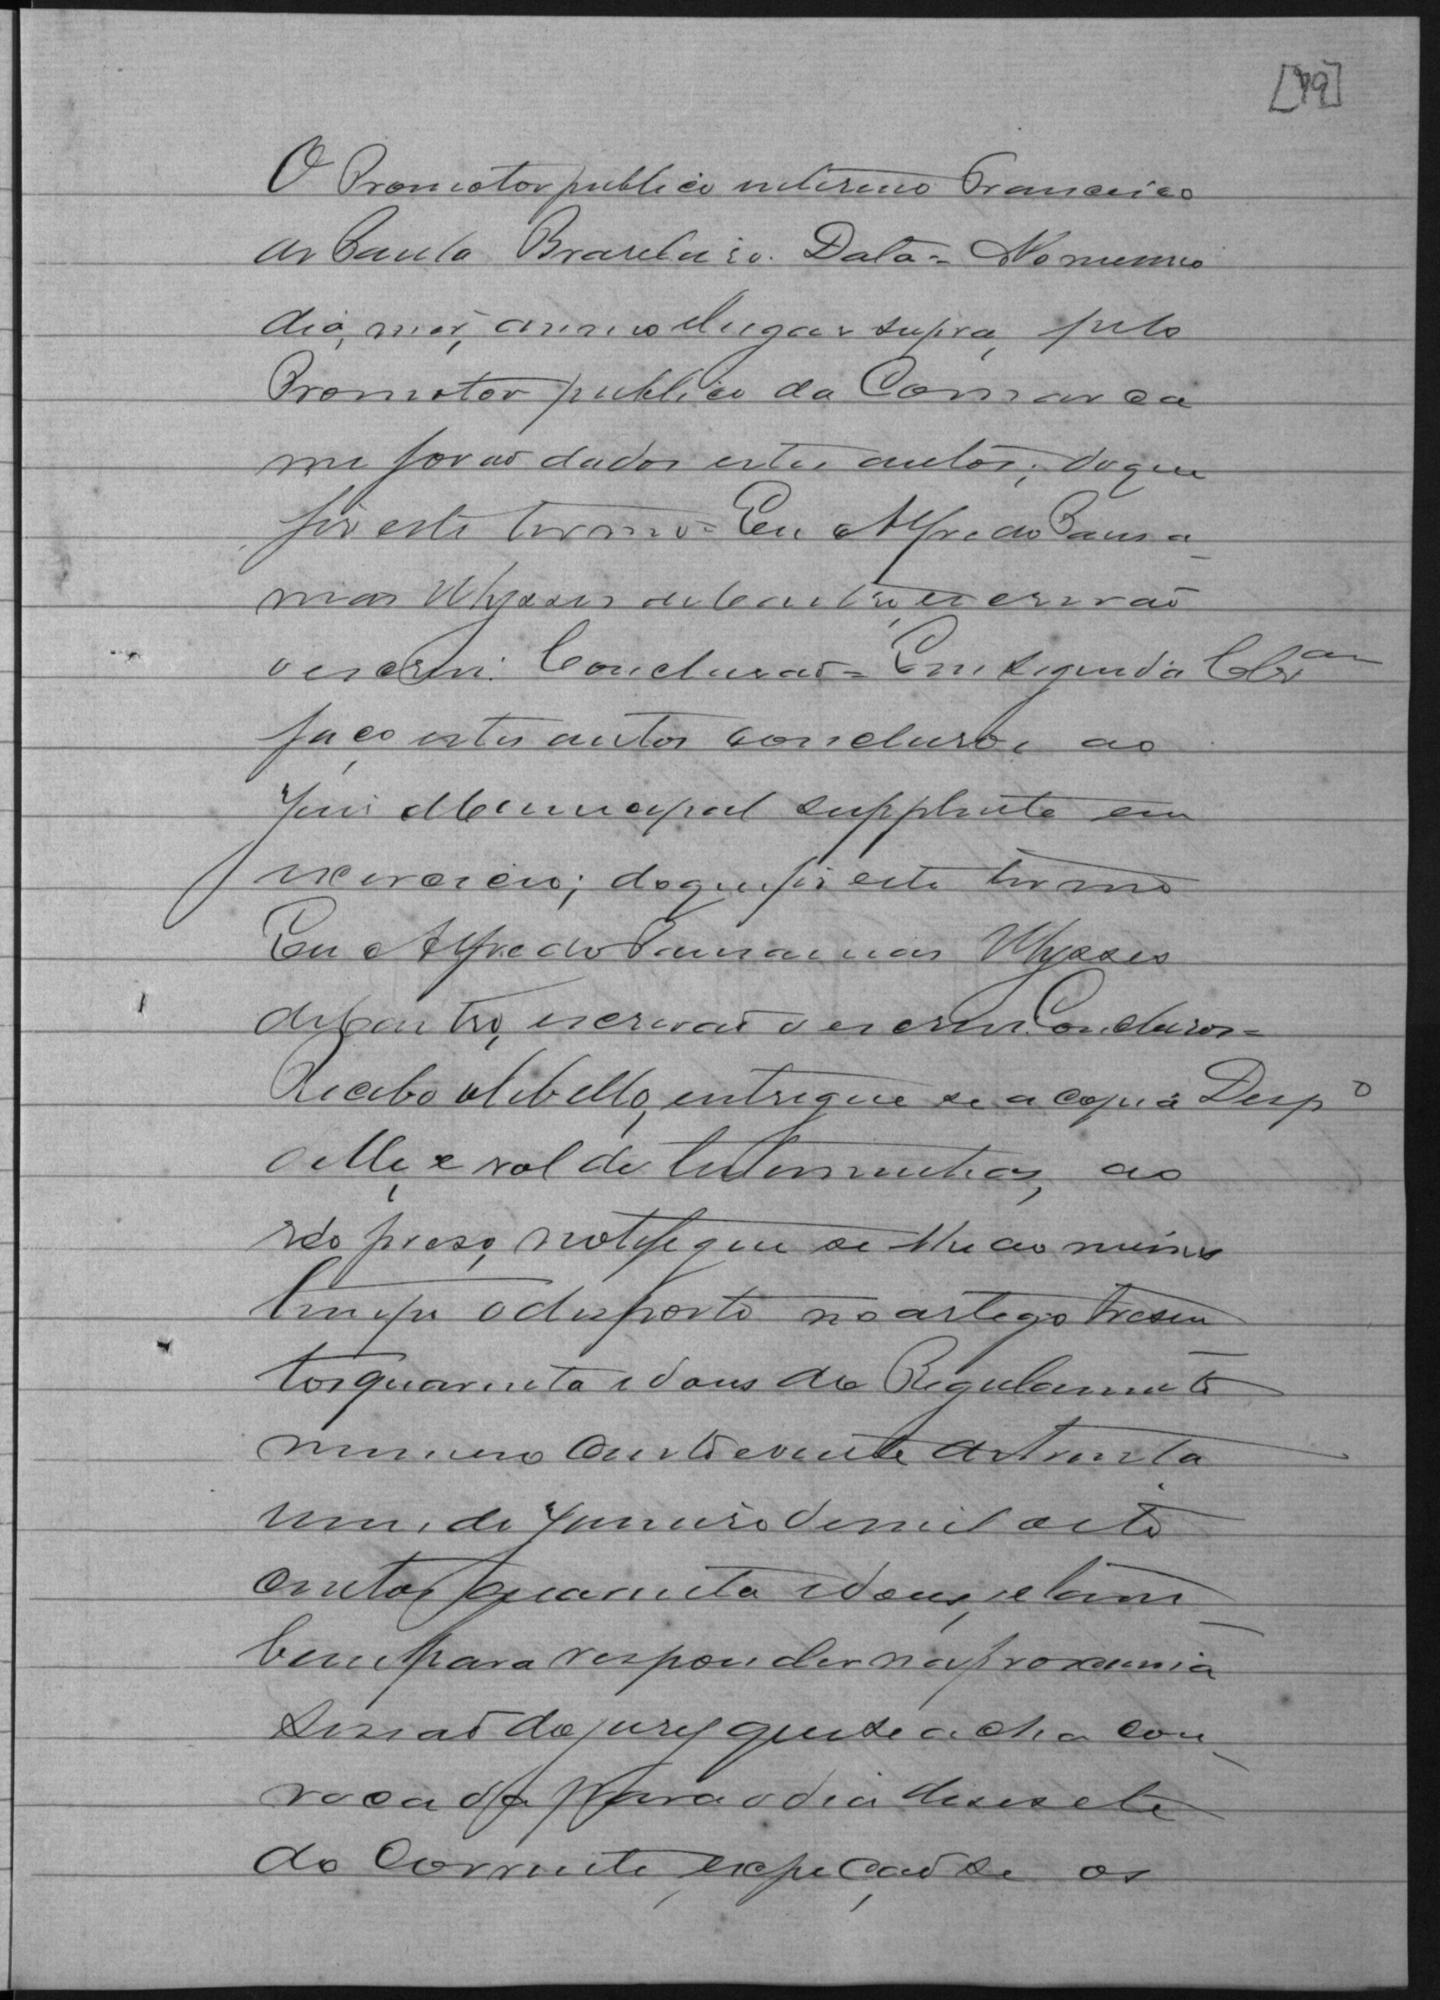 [49]
O Promotor publico interino Francisco
de Paula Brasileiro. Data = No mesmo
dia, mez, anno e lugar supra, pelo
Promotor publico da Comarca
me forão dados estes autos; do que
fiz este termo = Eu Alfredo Pausa-
nias Ulysses de Castro, escrivão
o escrevi. Conclusão = Em seguida Clsam
faço estes autos conclusos ao
Juiz Municipal supplente em
exercicio; do que fiz este termo
Eu Alfredo Pausanias Ulysses
de Castro, escrivão o escrevi. Conclusos =
Recebo o libello, entregue se a copia Despo
delle, e rol de testemunhas, ao
réo preso, notifique se lhe ao mesmo
tempo o disposto no artigo tresen
tos quarenta e dous do Regulamento
numero cento e vinte de trinta
um de Janeiro de mil oito
centos quarenta e dous, e tam
bem para responder na proxima
sessão do jury que se acha con
vocada para o dia desesete
do corrente, expeção se os